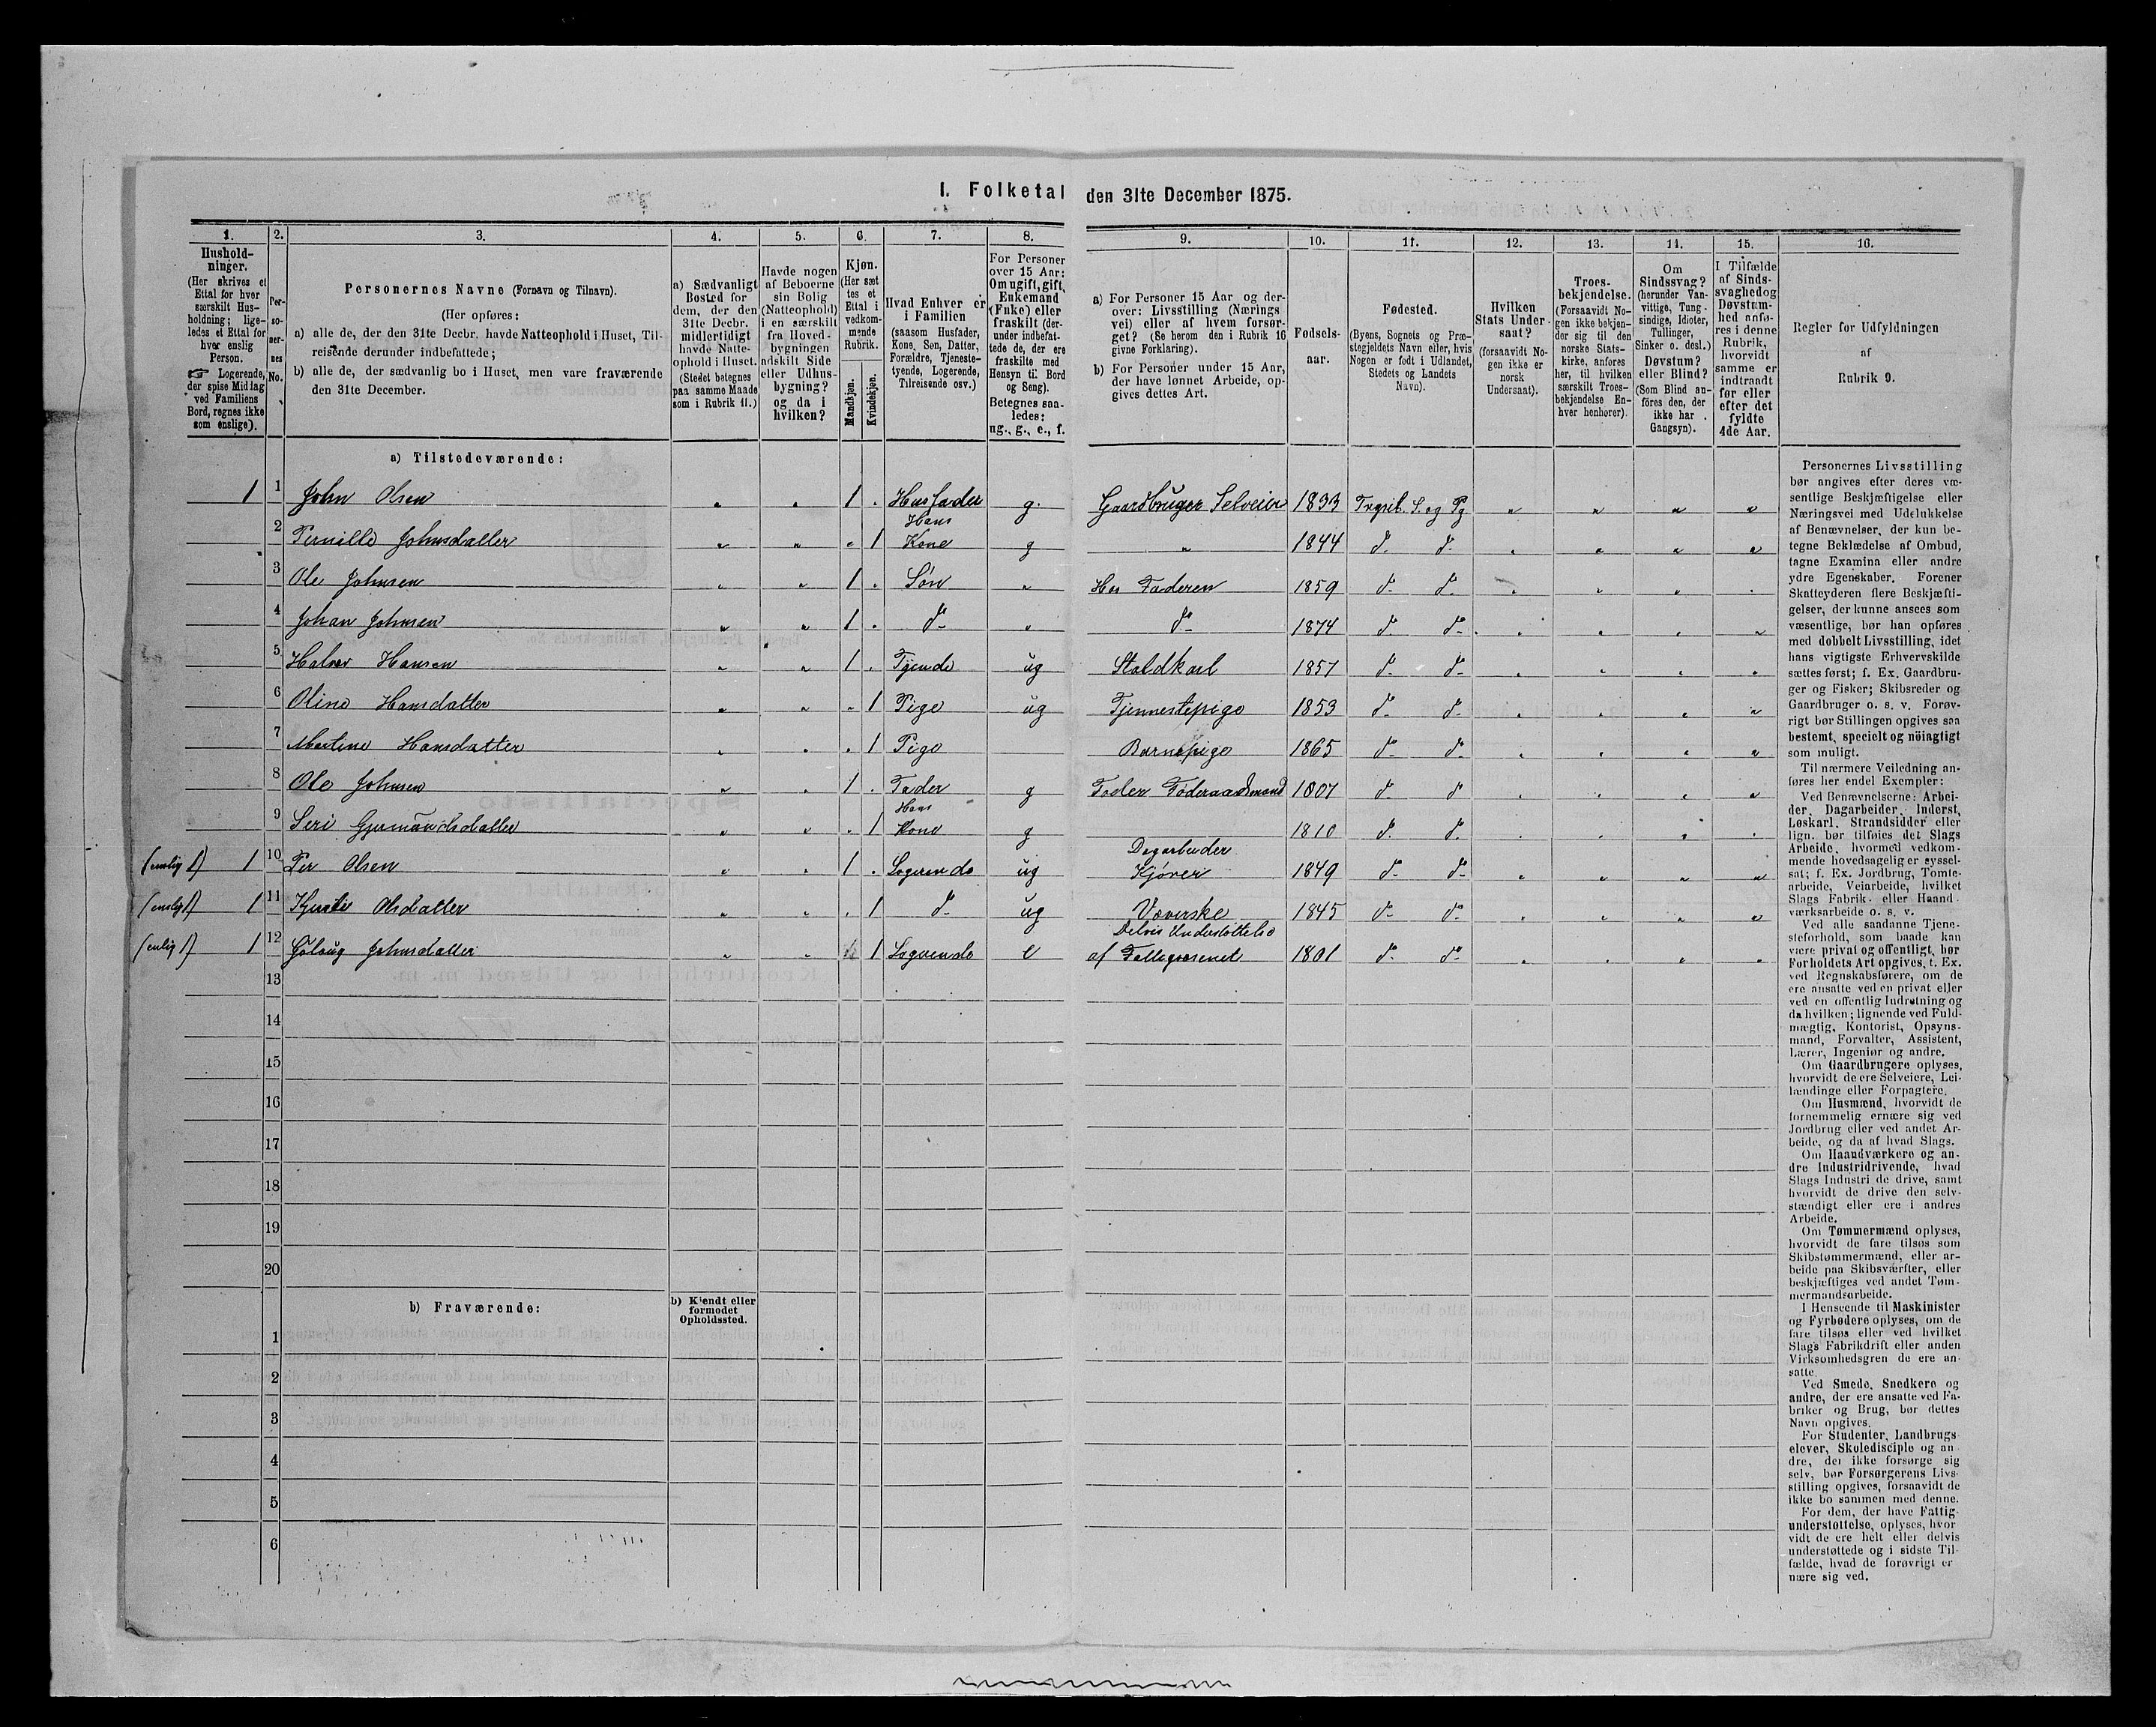 I. Folketal den 31te December 1875.
1. 2. 3. 4. 5. 6. 7. 8. 9. 10. 11. 12. 13. 14. 15. 16.
Hushold-
ninger.
(Her skrives et
Ettal for hver
særskilt Hus-
holdning; lige-
ledes et Ettal for
hver enslig
Person.
☞ Logerende,
der spise Middag
ved Familiens
Bord, regnes ikke
som enslige).
Per-
so-
ner-
nes
No.
Personernes Navne (Fornavn og Tilnavn).
(Her opføres:
a) alle de, der den 31te Decbr. havde Natteophold i Huset, Til-
reisende derunder indbefattede;
b) alle de, der sædvanlig bo i Huset, men vare fraværende
den 31te December.
a) Sædvanligt
Bosted for
dem, der den
31te Decbr.
midlertidigt
havde Natte-
ophold i Huset.
(Stedet betegnes
paa samme Maade
som i Rubrik 11.)
Havde nogen
af Beboerne
sin Bolig
(Natteophold)
i en særskilt
fra Hoved-
bygningen
adskilt Side
eller Udhus-
bygning?
og da i
hvilken?
Kjøn.
(Her sæt
tes et
Ettal i
vedkom-
mende
Rubrik.
Mandkjøn.
Kvindekjøn.
Hvad Enhver er
i Familien
(saasom Husfader,
Kone, Søn, Datter,
Forældre, Tjeneste-
tyende, Logerende,
Tilreisende osv.)
For Personer
over 15 Aar:
Om ugift, gift,
Enkemand
(Enke) eller
fraskilt (der-
under indbefat-
tede de, der ere
fraskilte med
Hensyn til Bord
og Seng).
Betegnes saa-
ledes:
ug., g., e., f.
a) For Personer 15 Aar og der-
over: Livsstilling (Nærings
vei) eller af hvem forsør-
get? (Se herom den i Rubrik 16
givne Forklaring).
b) For Personer under 15 Aar,
der have lønnet Arbeide, op-
gives dettes Art.
Fødsels-
aar.
Fødested.
(Byens, Sognets og Præ-
stegjeldets Navn eller, hvis
Nogen er født i Udlandet,
Stedets og Landets
Navn).
Hvilken
Stats Under-
saat?
(forsaavidt No-
gen ikke er
norsk
Undersaat).
Troes-
bekjendelse.
(Forsaavidt No-
gen ikke bekjen-
der sig til den
norske Stats-
kirke, anføres
her, til hvilken
særskilt Troes-
bekjendelse En-
hver henhører).
Om
Sindssvag?
(herunder Van-
vittige, Tung-
sindige, Idioter,
Tullinger,
Sinker o. desl.)
Døvstum?
eller Blind?
(Som Blind an-
føres den, der
ikke har
Gangsyn).
I Tilfælde
af Sinds-
svaghed og
Døvstum-
hed anfø-
res i denne
Rubrik,
hvorvidt
samme er
indtraadt
før eller
efter det
fyldte
4de Aar.
Regler for Udfyldningen
af
Rubrik 9.
a) Tilstedeværende:
1 1 John Olsen " " 1 . Husfader g. Gaardbruger Selveier 1833 Trysil. S. og Pg " " " "
2 Pernille Johnsdatter " " " 1 Hans Kone g " 1844 do do
3 Ole Johnsen " " 1 . Søn " Hos Faderen 1859 do do
4 Johan Johnsen " " 1 . do " do 1874 do do
5 Halvor Hansen " " 1 . Tyende ug Staldkarl 1857 do do
6 Oline Hansdatter " " . 1 Pige ug Tjennestepige 1853 do do
7 Martine Hansdatter " " . 1 Pige Barnepige 1865 do do
8 Ole Johnsen " " 1 . Fader g Fader Føderaadsmand 1807 do do
9 Seri Gjermundsdatter " " . 1 Hans Kone g 1810 do do
(enslig 1) 1 10 Per Olsen " " 1 . Logerende ug Dagarbeider Kjører 1849 do do
(enslig 1) 1 11 Kjersti Olsdatter " " . 1 do ug Væverske 1845 do do
(enslig 1) 1 12 Johnsdatter " " 1 Logerende e Delvis Understøttelse af Fattigvæsenet 1801 do do
13
14
15
16
17
18
19
20
b) Fraværende:
b) Kjendt eller
formodet
Opholdssted.
1
2
3
4
5
6
Personernes Livsstilling
bør angives efter deres væ-
sentlige Beskjæftigelse eller
Næringsvei med Udelukkelse
af Benævnelser, der kun be-
tegne Beklædelse af Ombud,
tagne Examina eller andre
ydre Egenskaber. Forener
Skatteyderen flere Beskjæfti-
gelser, der kunne ansees som
væsentlige, bør han opføres
med dobbelt Livsstilling, idet
hans vigtigste Erhvervskilde
sættes først; f. Ex. Gaardbru-
ger og Fisker; Skibsreder og
Gaardbruger o. s. v. Forøv-
rigt bør Stillingen opgives saa
bestemt, specielt og nöiagtigt
som muligt.
Til nærmere Veiledning an-
føres her endel Exempler:
Ved Benævnelserne: Arbei-
der, Dagarbeider, Inderst,
Løskarl, Strandsidder eller
lign. bør tilføies det Slags
Arbeide, hvormed vedkom-
mende hovedsagelig er syssel-
sat; f. Ex. Jordbrug, Tomte-
arbeide, Veiarbeide, hvilket
Slags Fabrik- eller Haand
værksarbeide o. s. v.
Ved alle saadanne Tjene-
steforhold, som baade kan
være privat og offentligt, bør
Forholdets Art opgives, t. Ex.
ved Regnskabsførere, om de
ere ansatte ved en privat eller
ved en offentlig Indretning og
da hvilken; lignende ved Fuld-
mægtig, Kontorist, Opsyns-
mand, Forvalter, Assistent,
Lærer, Ingeniør og andre.
Om Gaardbrugere oplyses,
hvorvidt de ere Selveiere, Lei-
lændinge eller Forpagtere.
Om Husmænd, hvorvidt de
fornemmelig ernære sig ved
Jordbrug eller ved andet Ar-
beide, og da af hvad Slags.
Om Haandværkere og an-
dre Industridrivende, hvad
Slags Industri de drive, samt
hvorvidt de drive den selv-
stændigt eller ere i andres
Arbeide.
Om Tømmermænd oplyses,
hvorvidt de fare tilsøs som
Skibstømmermænd, eller ar-
beide paa Skibsværfter, eller
beskjæftiges ved andet Tøm-
mermandsarbeide.
I Henseende til Maskinister
og Fyrbødere oplyses, om de
fare tilsøs eller ved hvilket
Slags Fabrikdrift eller anden
Virksomhedsgren de ere an-
satte.
Ved Smede, Snedkere og
andre, der ere ansatte ved Fa-
briker og Brug, bør dettes
Navn opgives.
For Studenter, Landbrugs-
elever, Skoledisciple og an-
dre, der ikke forsørge sig
selv, bør Forsørgerens Livs-
stilling opgives, forsaavidt de
ikke bo sammen med denne.
For dem, der have Fattig-
understøttelse, oplyses, hvor
vidt de ere helt eller delvis
understøttede og i sidste Til-
fælde, hvad de forøvrigt er-
nære sig ved.